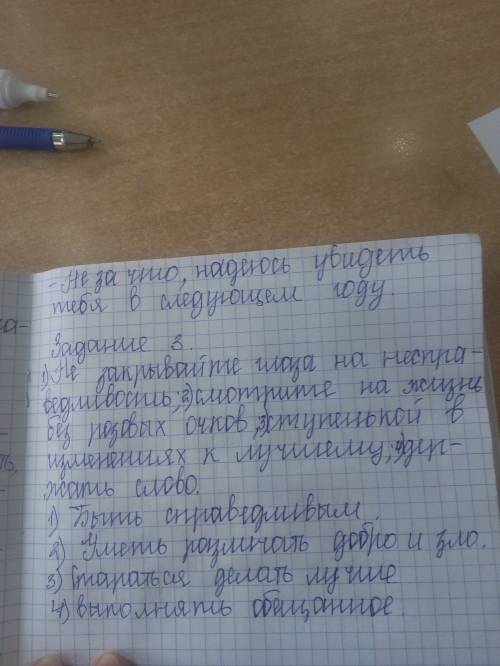 - Не за что, надеюсь увидеть
тебя в следующем году.
Задание 3.
1) Не закрывайте глаза на неспра-
ведливость; 2) смотрите на жизнь
без розовых очков; 3) ступенькой в
изменениях к лучшему; 4) дер-
жать слово.
1) Быть справедливым.
2) Уметь различать добро и зло.
3) Стараться делать лучше
4) выполнять обещанное.